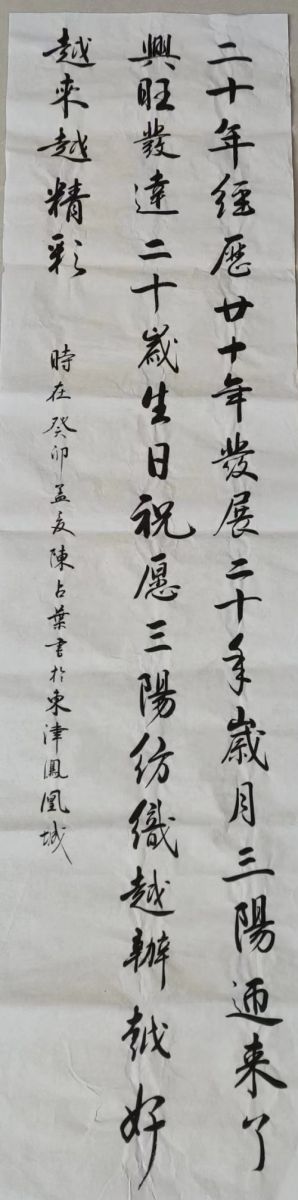 二十年經歷廿十年發展二十年歲月三陽迊来了
興旺發達二十歲生日祝愿三陽纺織越辦越好
越来越精彩
時在癸卯孟夏陳占葉書於東津鳳凰城